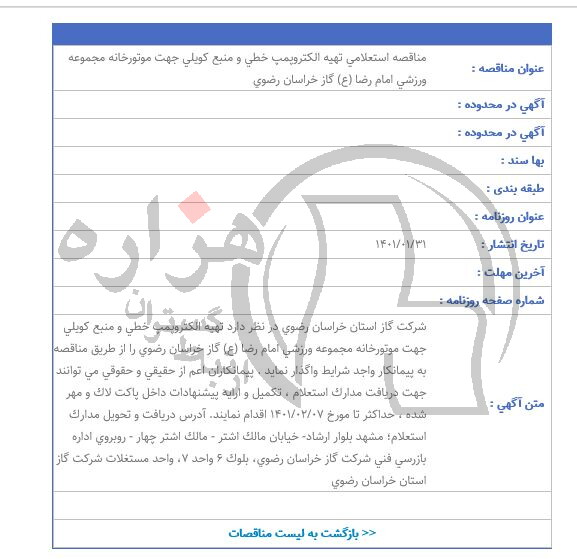 عنوان مناقصه : مناقصه استعلامي تهيه الكتروپمپ خطي و منبع كويلي جهت موتورخانه مجموعه
ورزشي امام رضا (ع) گاز خراسان رضوي
آگهي در محدوده :
آگهي در محدوده :
بها سند :
طبقه بندی :
عنوان روزنامه :
تاریخ انتشار : ۱۴۰۱/۰۱/۳۱
آخرين مهلت :
شماره صفحه روزنامه :
متن آگهي :
شركت گاز استان خراسان رضوي در نظر دارد تهيه الكتروپمپ خطي و منبع كويلي
جهت موتورخانه مجموعه ورزشي امام رضا (ع) گاز خراسان رضوي را از طريق مناقصه
به پيمانكار واجد شرايط واگذار نمايد . پيمانكاران اعم از حقيقي و حقوقي مي توانند
جهت دريافت مدارك استعلام ، تكميل و ارايه پيشنهادات داخل پاكت لاك و مهر
شده ، حداكثر تا مورخ ۱۴۰۱/۰۲/۰۷ اقدام نمايند. آدرس دريافت و تحويل مدارك
استعلام؛ مشهد بلوار ارشاد- خيابان مالك اشتر - مالك اشتر چهار - روبروي اداره
بازرسي فني شركت گاز خراسان رضوي، بلوك ۶ واحد ۷، واحد مستغلات شركت گاز
استان خراسان رضوي
<< بازگشت به لیست مناقصات
هزاره